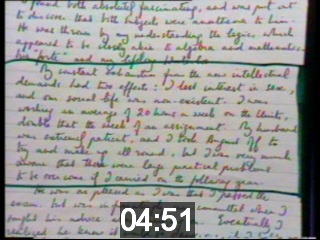 found both absolutely fascinating, and was put out
to discover that both subjects were anathema to him.
He was thrown by my understanding the logic, which
appeared to be closely akin to algebra and mathematics
and my lifelong
My constant exhaustion from the new intellectual
demands had two effects: I lost interest in sex,
and our social life was non-existent. I was
working an average of 20 hours a week on the Units,
double that the week of an assignment. My husband
was extremely patient, and I took August off to
try and make up all round, but I was very much
aware that there were large practical problems
to be overcome if I carried on the following year.
He was as pleased as I was that I passed the
exam, but was in committed when I
sought his advice Eventually I
realised he knew
04:51